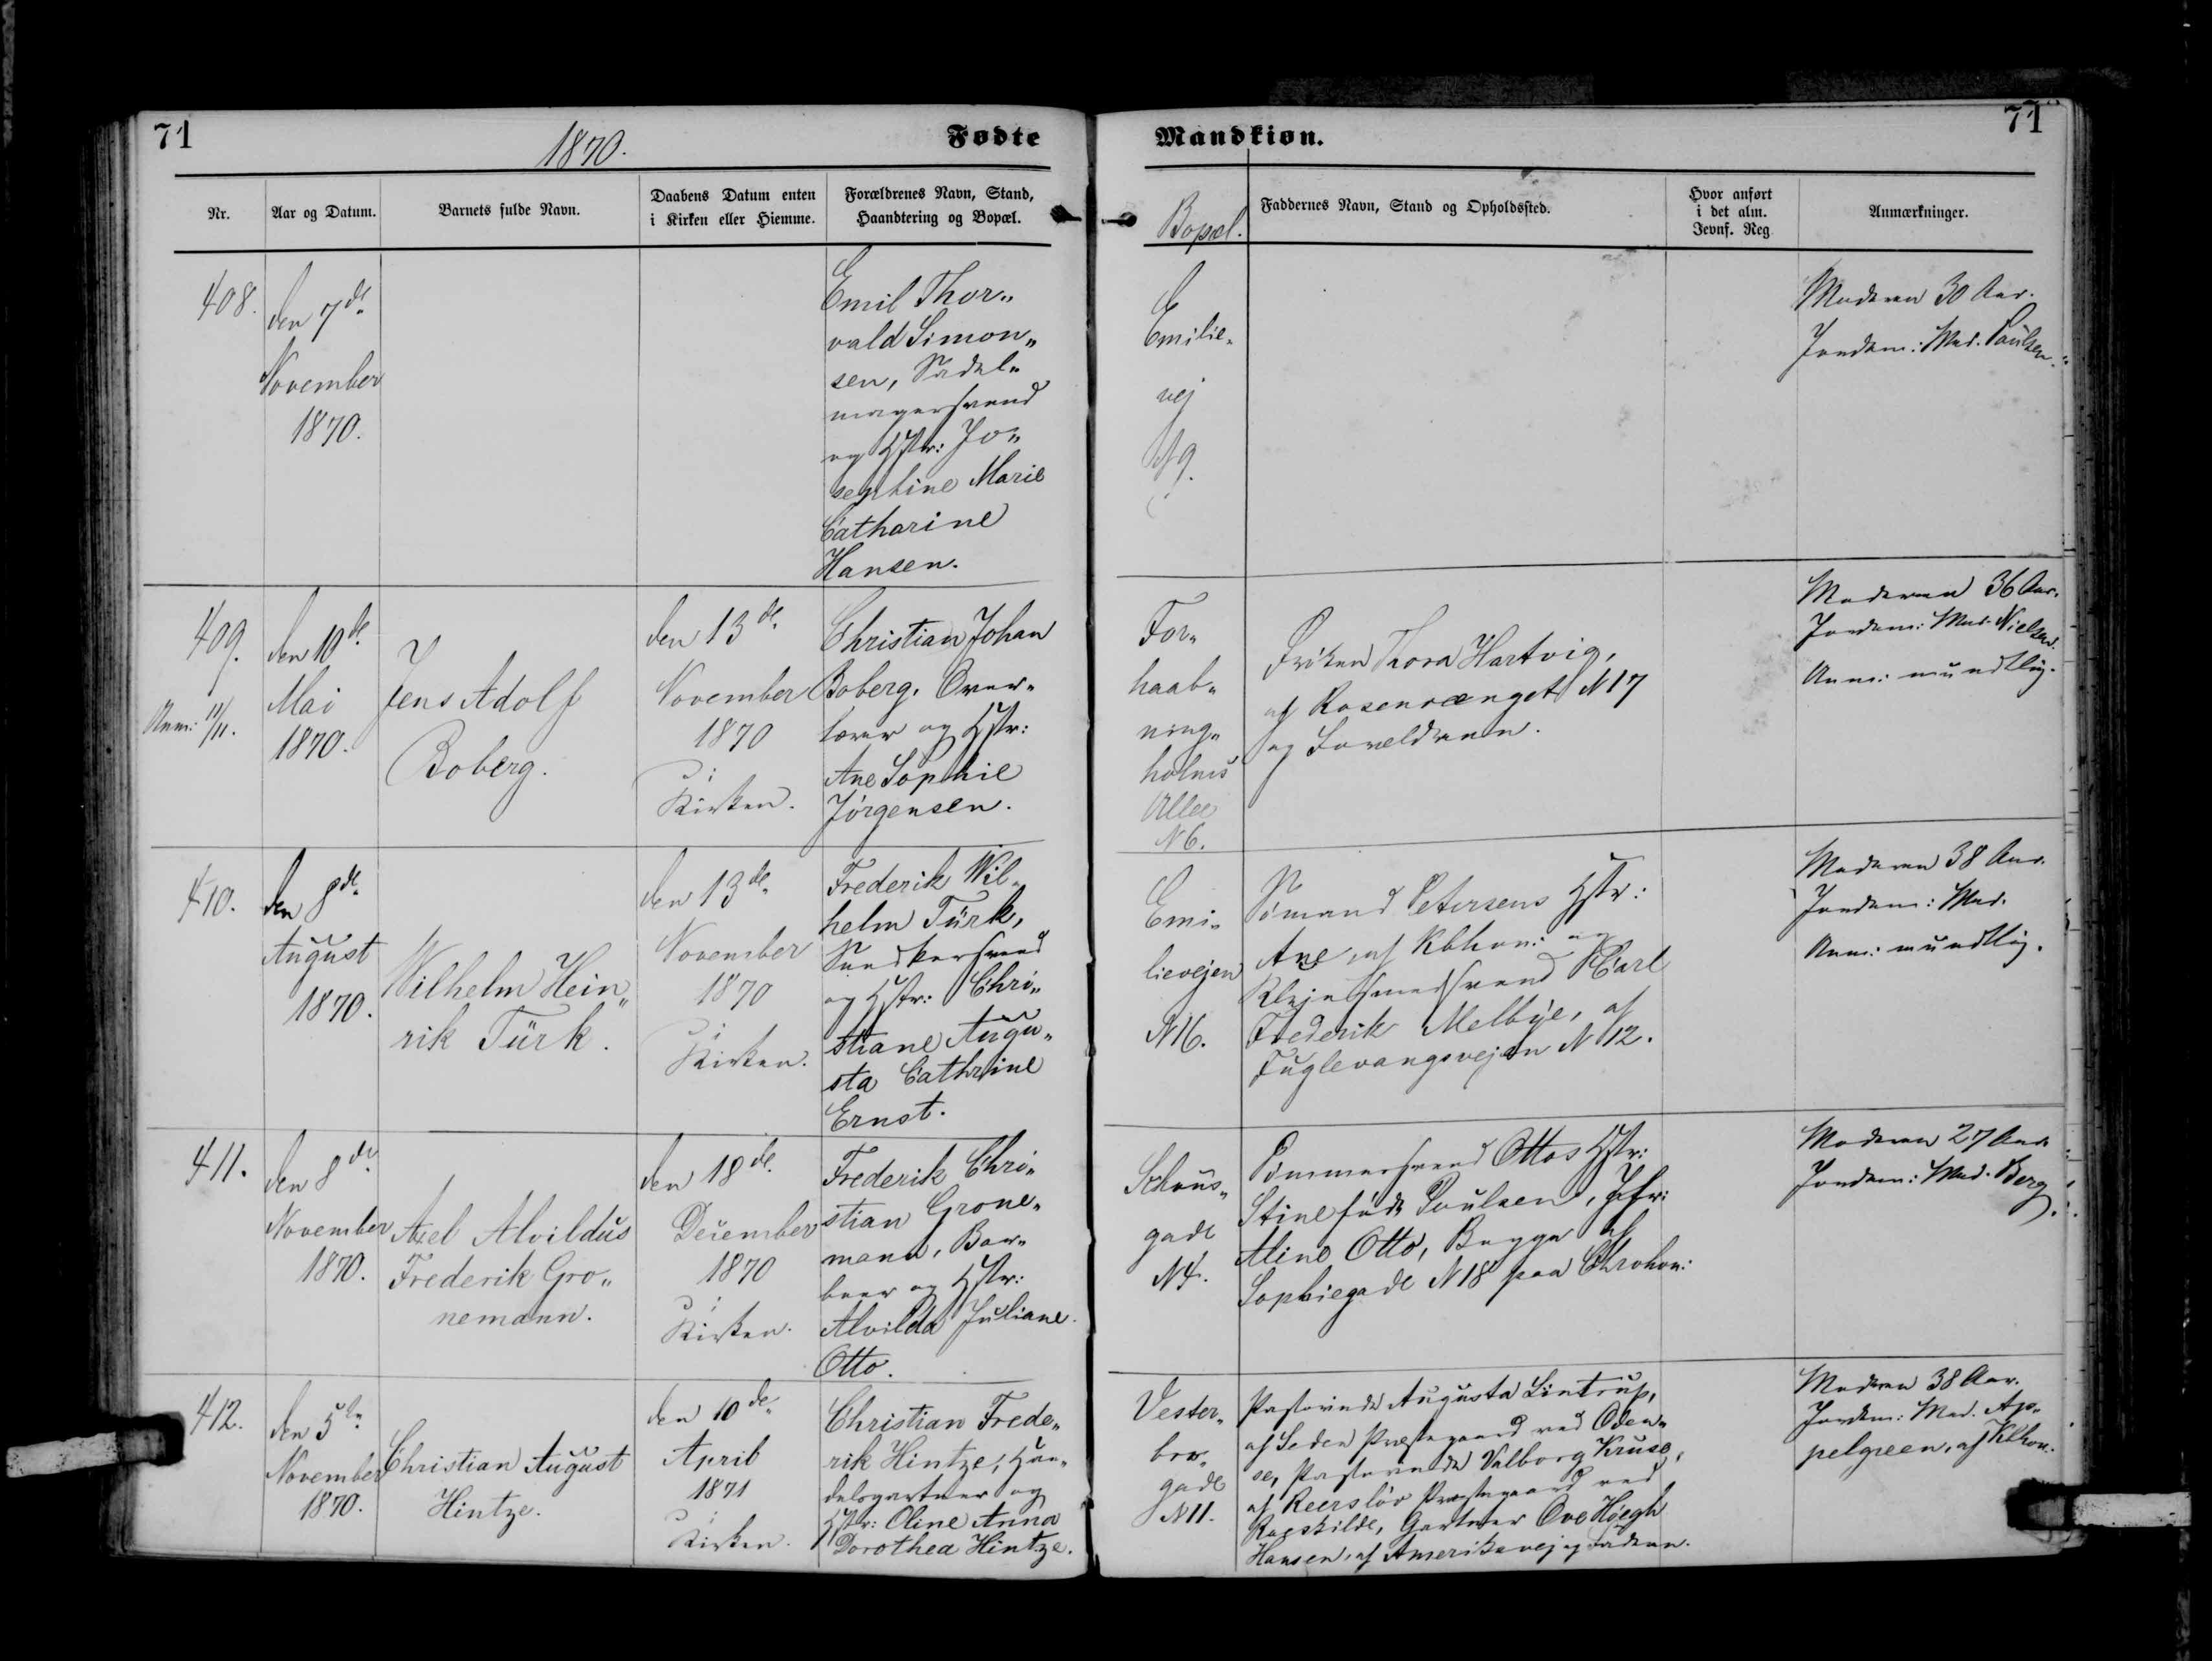 71
1870.
Fødte
Mandkiøn.
71
Nr.
Aar og Datum.
Barnets fulde Navn.
Daabens Datum enten
i Kirken eller Hiemme.
Forældrenes Navn, Stand,
Haandtering og Bopæl.
Bopæl.
Faddernes Navn, Stand og Opholdssted.
Hvor anført
i det alm.
Jevnf. Reg
Anmærkninger.
408.
den 7de
November
1870.
Emil Thor„
vald Simon„
sen, Sadel„
magersvend
og Hstr: Jo„
sephine Marie
Catharine
Hansen.
Emilie„
vej
N 9.
Moderen 30 Aar.
Jordem: Mad. Poulsen.
409.
Anm: 11/11.
den 10de
Mai
1870.
Jens Adolf
Boberg.
den 13de
November
1870
i
Kirken.
Christian Johan
Boberg, Over„
lærer og Hstr:
Ane Sophie
Jørgensen.
For„
haab„
nings„
holms
Allee
N 6.
Frøken Thora Hartvig,
af Rosenvænget N 17
og Forældrene.
Moderen 36 Aar.
Jordem: Mad. Nielsen.
Anm: mundtlig.
410.
den 8de
August
1870.
Wilhelm Hein„
rik Türk.
den 13de
November
1870
i
Kirken.
Frederik Wil„
helm Türk,
Snedkersvend
og Hstr: Chri„
stiane Augu„
sta Cathrine
Ernst.
Emi„
lievejen
N 16.
Sømand Petersens Hstr:
Ane, af Kbhvn: og
Klejnsmedsvend Carl
Frederik Melbye, af
Fuglevangsvejen N 12.
Moderen 38 Aar.
Jordem: Mad.
Anm: mundtlig.
411.
den 8de
November
1870.
Axel Alvildus
Frederik Gro„
nemann.
den 18de
December
1870
i
Kirken.
Frederik Chri„
stian Grone„
mann, Bar„
beer og Hstr:
Alvilda Juliane
Otto.
Schous„
gade
N 4.
Tømmersvend Ottos Hstr:
Stine født Poulsen, Jfr:
Aline Otto, Begge af
Sophiegade N 18 paa Chrhvn:
Moderen 27 Aar
Jordem: Mad. Berg.
412.
den 5te
November
1870.
Christian August
Hintze.
den 10de
April
1871
i
Kirken.
Christian Frede„
rik Hintze, Han„
delsgartner og
Hstr: Oline Anna
Dorothea Hintze.
Vester„
bro„
gade
N 11.
Pastorinde Augusta Lintrup,
af Seden Præstegaard ved Oden„
se, Pastorinde Valborg Kruse,
af Reerslev Præstegaard ved
Roeskilde, Gartner Ove Høegh
Hansen, af Amerikavej og Faderen.
Moderen 38 Aar.
Jordem: Mad. Ap„
pelgreen, af Kbhvn.